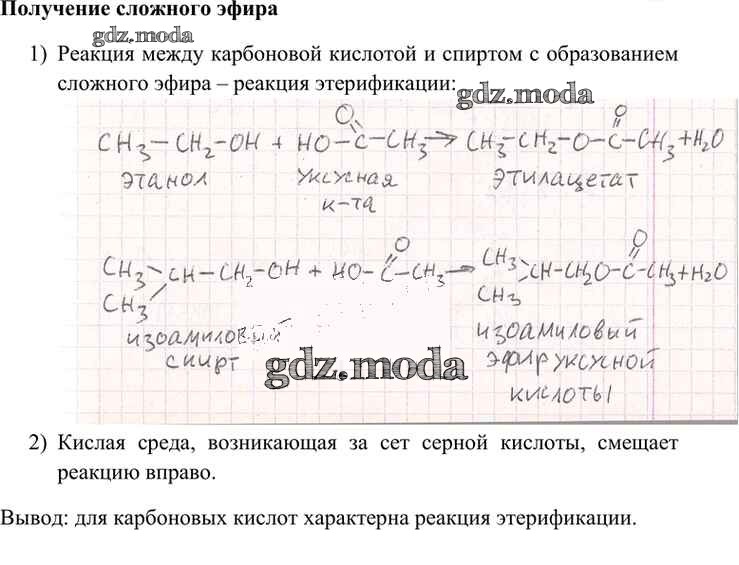 Получение сложного эфира
gdz.moda
1) Реакция между карбоновой кислотой и спиртом с образованием
сложного эфира – реакция этерификации:
gdz.moda
O
O
CH₃–CH₂–OH + HO–C–CH₃ → CH₃–CH₂–O–C–CH₃+H₂O
этанол уксусная этилацетат
к-та
O
O
CH₃ CH–CH₂–OH + HO–C–CH₃ → CH₃ CH–CH₂O–C–CH₃+H₂O
CH₃ CH₃
изоамиловый изоамиловый
спирт эфир уксусной
gdz.moda
кислоты
2) Кислая среда, возникающая за сет серной кислоты, смещает
реакцию вправо.
Вывод: для карбоновых кислот характерна реакция этерификации.